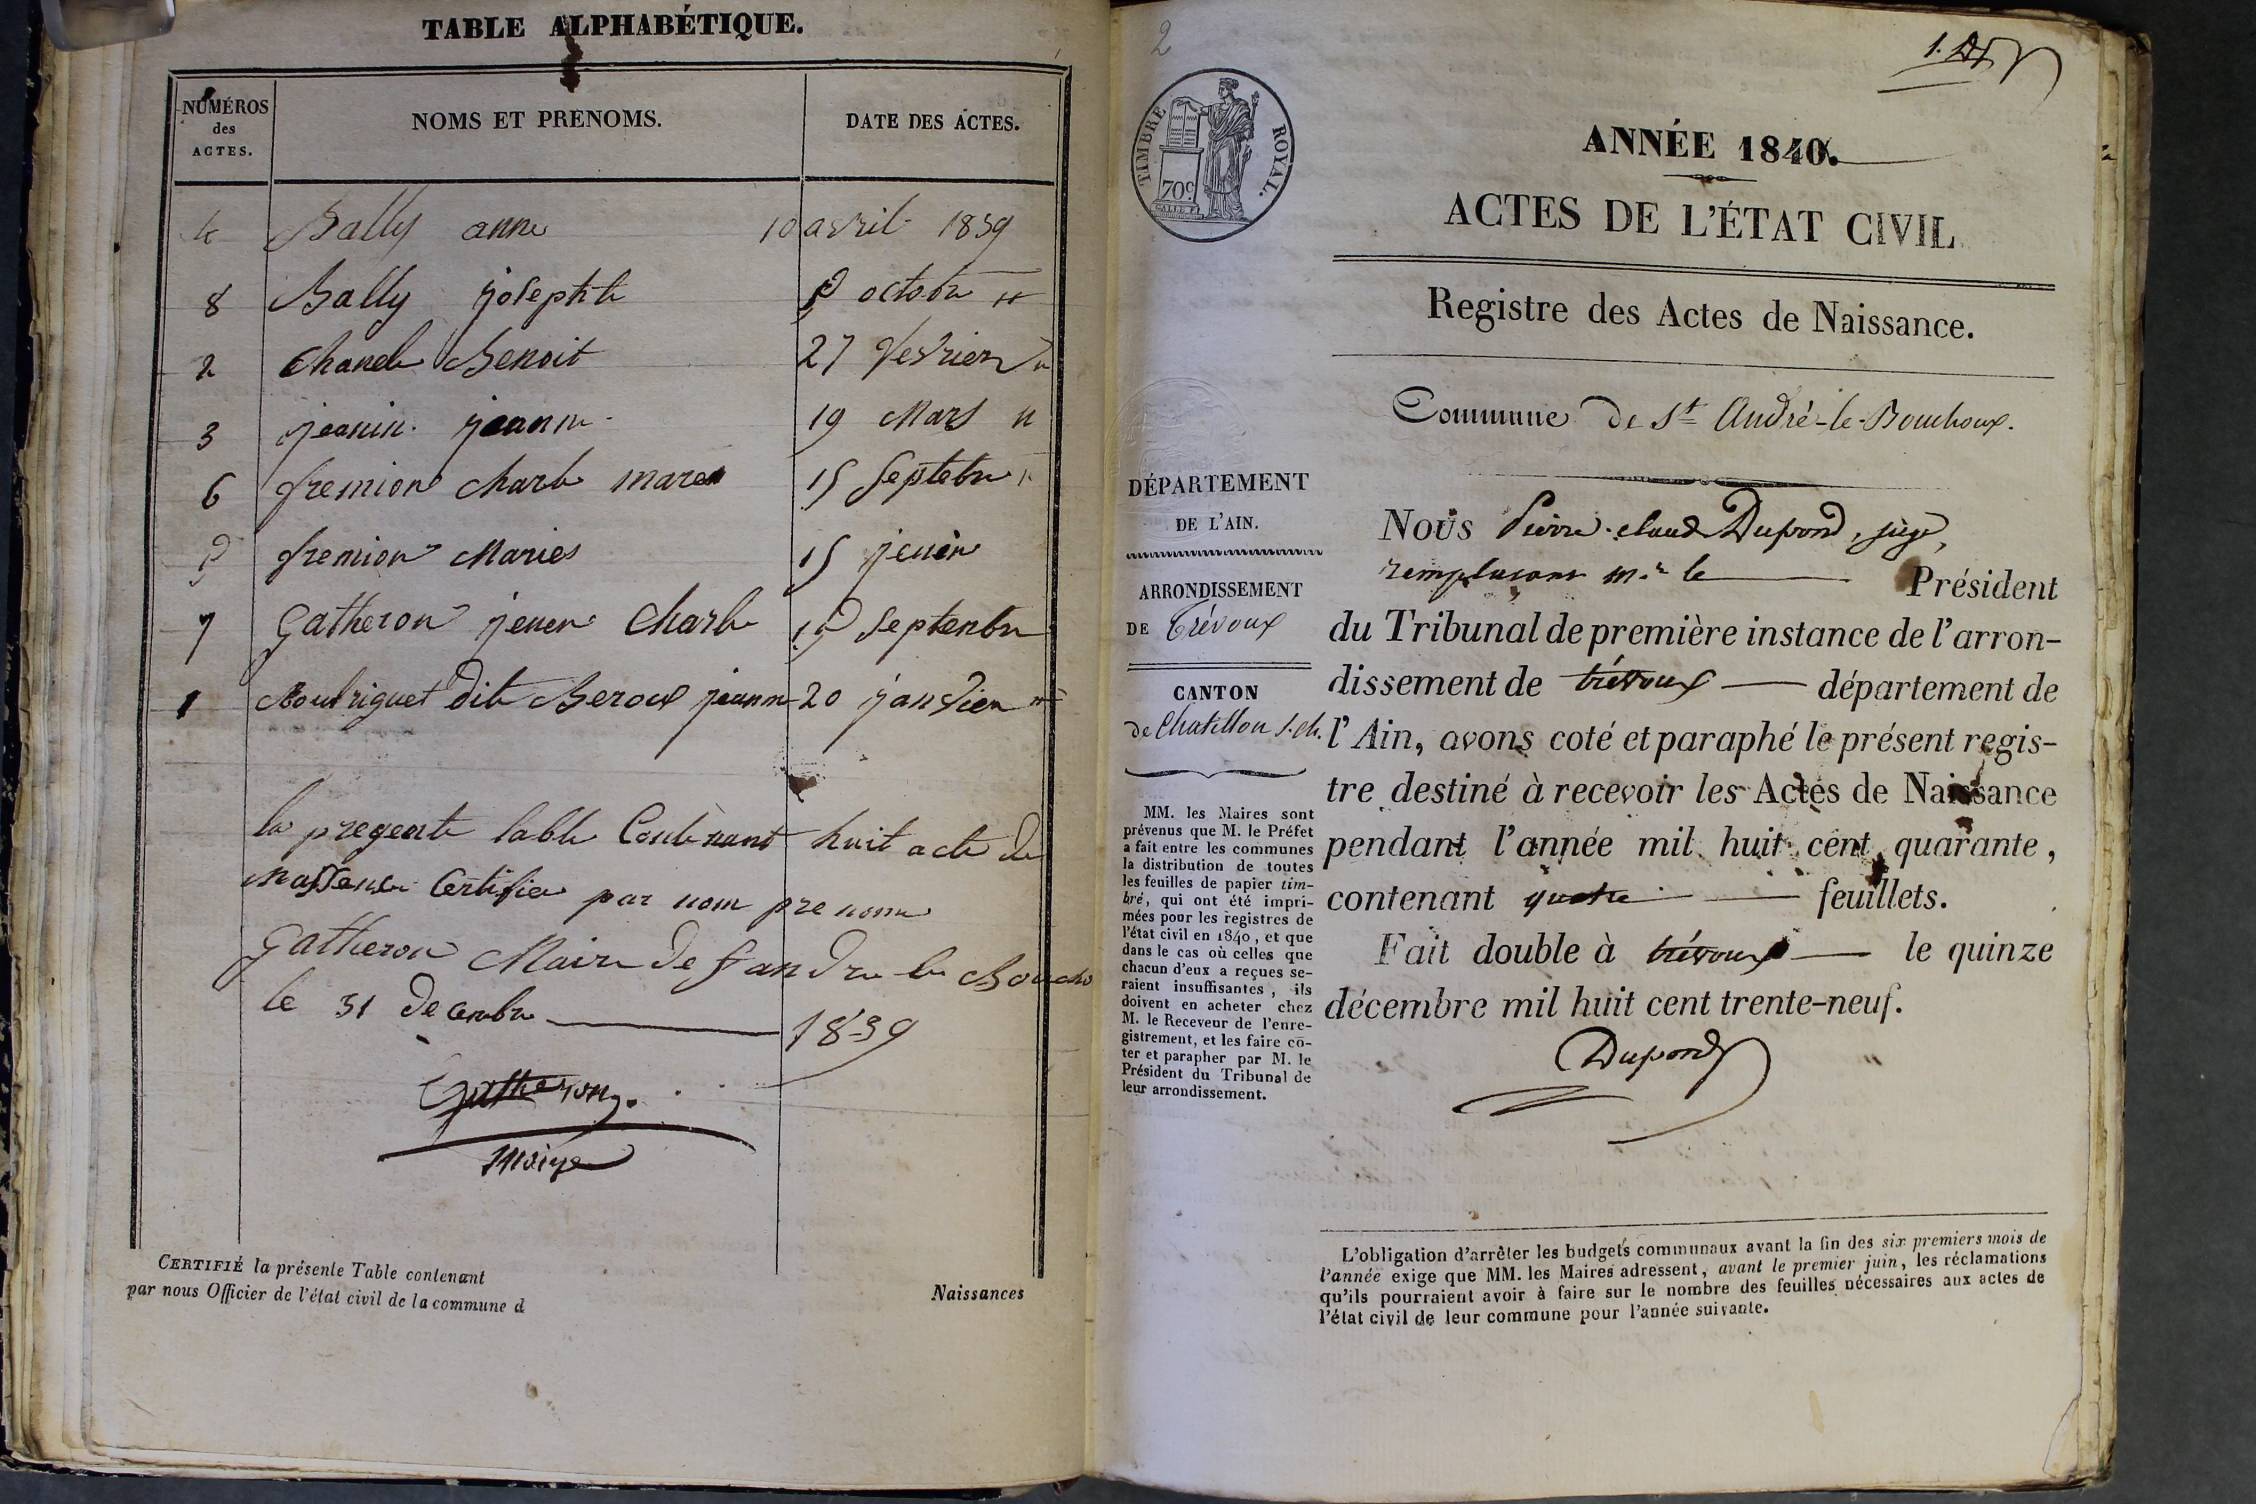 TABLE ALPHABÉTIQUE.
NUMÉROS des ACTES.
NOMS ET PRENOMS.
DATE DES ACTES.
4 Bally anne 10 avril 1839
8 Bally josephte octobre "
2 Chanel Benoit 27 fevrier "
3 jeanin jeanne 19 Mars "
6 fremion Charle 15 Septebre "
5 fremion Maries 15
7 Gatheron Charle Septenbre
1 dit Beroux jeann 20 janvier "
la pregente table Contenant huit acte de
Certifier par nom prenom
Gatheron Maire de fandre le Boucho
le 31 decembre 1839
Gatheron
CERTIFIÉ la présente Table contenant
Naissances
par nous Officier de l'état civil de la commune d
2
TIMBRE ROYAL.
70c
ANNÉE 1840.
ACTES DE L'ÉTAT CIVIL
Registre des Actes de Naissance.
Commune de St André-le-Bouchoux.
DÉPARTEMENT
DE L'AIN.
ARRONDISSEMENT
DE Trévoux
CANTON
de Chatillon s. ch.
MM. les Maires sont
prévenus que M. le Préfet
a fait entre les communes
la distribution de toutes
les feuilles de papier tim-
bré, qui ont été impri-
mées pour les registres de
l'état civil en 1840, et que
dans le cas où celles que
chacun d'eux a reçues se-
raient insuffisantes, ils
doivent en acheter chez
M. le Receveur de l'enre-
gistrement, et les faire co-
ter et parapher par M. le
Président du Tribunal de
leur arrondissement.
Nous Pierre-claude Dupond, juge,
remplaçant mr le Président
du Tribunal de première instance de l'arron-
dissement de trévoux département de
l'Ain, avons coté et paraphé le présent regis-
tre destiné à recevoir les Actes de Naissance
pendant l'année mil huit cent quarante,
contenant quatre feuillets.
Fait double à trévoux le quinze
décembre mil huit cent trente-neuf.
Dupond
L'obligation d'arrêter les budgets communaux avant la fin des six premiers mois de
l'année exige que MM. les Maires adressent, avant le premier juin, les réclamations
qu'ils pourraient avoir à faire sur le nombre des feuilles nécessaires aux actes de
l'état civil de leur commune pour l'année suivante.